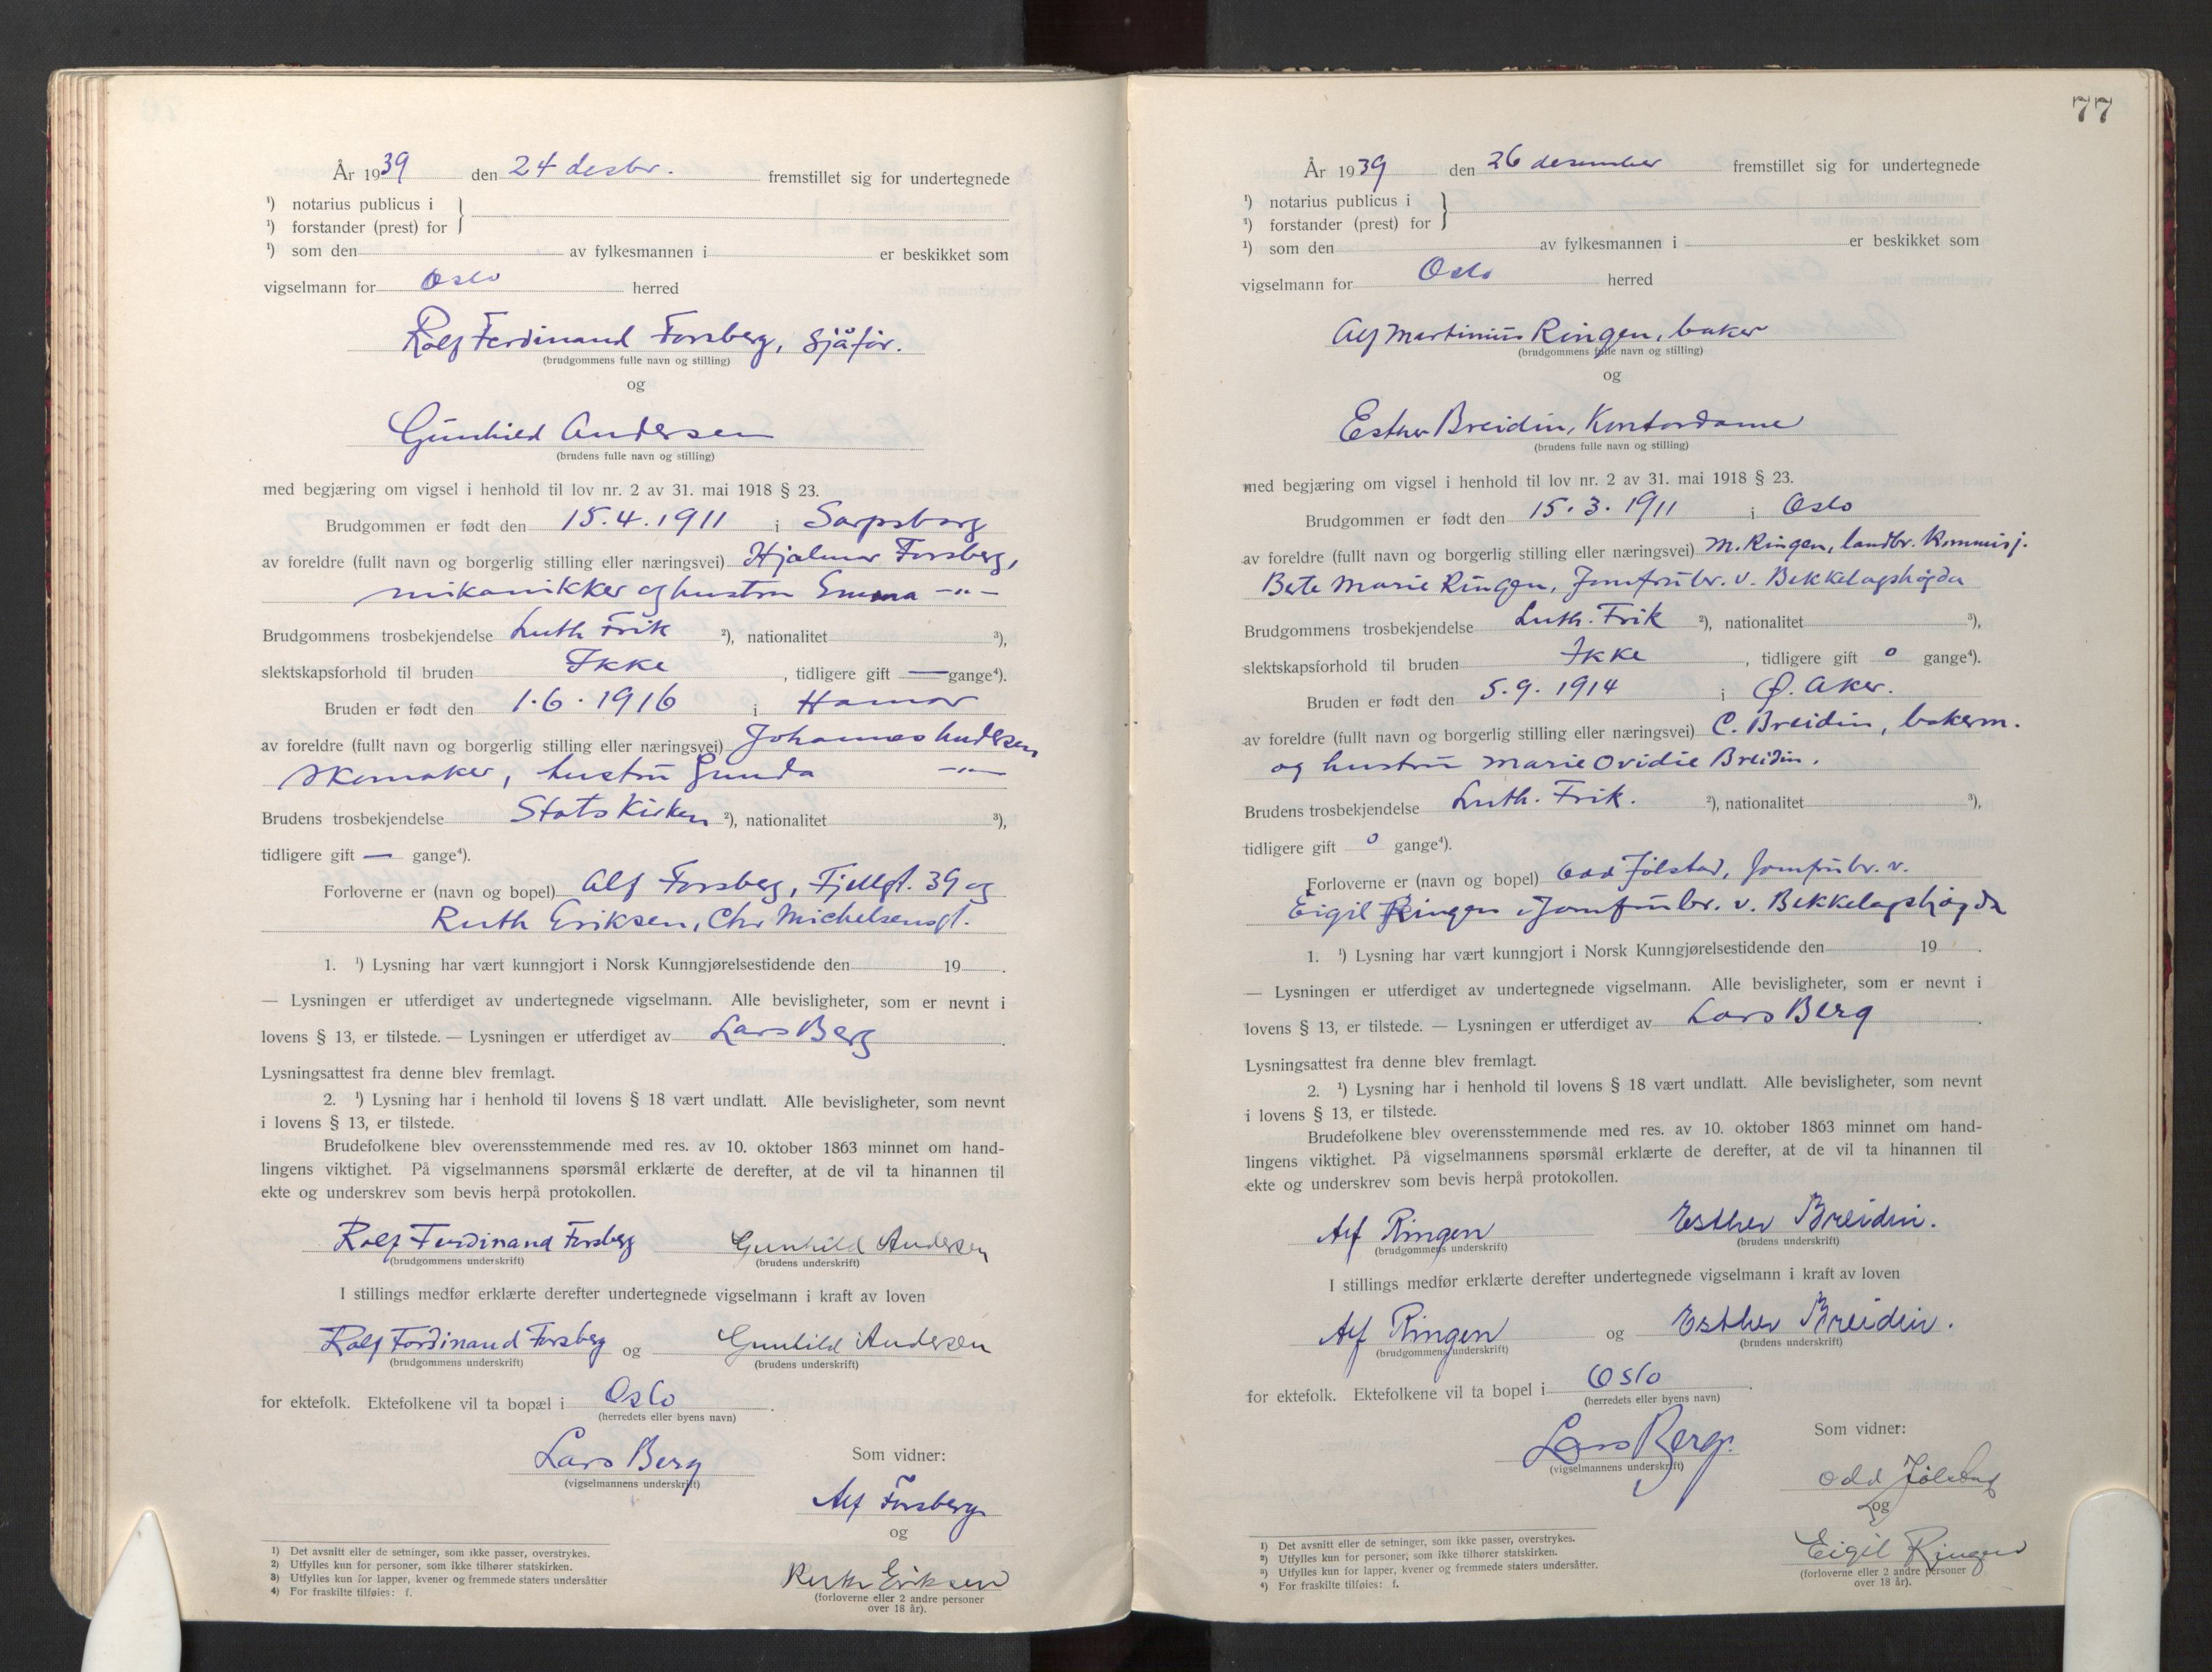 År 1939 den 24 desbr. fremstillet sig for undertegnede
¹) notarius publicus i
¹) forstander (prest) for
¹) som den av fylkesmannen i er beskikket som
vigselmann for Oslo herred
Rolf Ferdinand Forsberg, sjåför.
(brudgommens fulle navn og stilling)
og
Gunhild Andersen
(brudens fulle navn og stilling)
med begjæring om vigsel i henhold til lov nr. 2 av 31. mai 1918 § 23.
Brudgommen er født den 15.4.1911 i Sarpsborg
av foreldre (fullt navn og borgerlig stilling eller næringsvei) Hjalmar Forsberg,
mikanikker og hustru Emma -"-
Brudgommens trosbekjendelse Luth Frik ²), nationalitet ³),
slektskapsforhold til bruden Ikke, tidligere gift — gange⁴).
Bruden er født den 1.6.1916 i Hamar
av foreldre (fullt navn og borgerlig stilling eller næringsvei) Johannes Andersen
skomaker, hustru Gunda -"-
Brudens trosbekjendelse Statskirken ²), nationalitet ³),
tidligere gift — gange⁴).
Forloverne er (navn og bopel) Alf Forsberg, Fjellgt. 39 og
Ruth Eriksen, Chr Michelsensgt.
1. ¹) Lysning har vært kunngjort i Norsk Kunngjørelsestidende den 19 .
— Lysningen er utferdiget av undertegnede vigselmann. Alle bevisligheter, som er nevnt i
lovens § 13, er tilstede. — Lysningen er utferdiget av Lars Berg.
Lysningsattest fra denne blev fremlagt.
2. ¹) Lysning har i henhold til lovens § 18 vært undlatt. Alle bevisligheter, som nevnt
i lovens § 13, er tilstede.
Brudefolkene blev overensstemmende med res. av 10. oktober 1863 minnet om hand-
lingens viktighet. På vigselmannens spørsmål erklærte de derefter, at de vil ta hinannen til
ekte og underskrev som bevis herpå protokollen.
Rolf Ferdinand Forsberg Gunhild Andersen
(brudgommens underskrift) (brudens underskrift)
I stillings medfør erklærte derefter undertegnede vigselmann i kraft av loven
Rolf Ferdinand Forsberg og Gunhild Andersen
(brudgommens underskrift) (brudens underskrift)
for ektefolk. Ektefolkene vil ta bopæl i Oslo.
(herredets eller byens navn)
Lars Berg
(vigselmannens underskrift)
Som vidner:
Alf Forsberg
og
Ruth Eriksen
(forloverne eller 2 andre personer
over 18 år).
1) Det avsnitt eller de setninger, som ikke passer, overstrykes.
2) Utfylles kun for personer, som ikke tilhører statskirken.
3) Utfylles kun for lapper, kvener og fremmede staters undersåtter
4) For fraskilte tilføies: f.
77
År 1939 den 26 desember fremstillet sig for undertegnede
¹) notarius publicus i
¹) forstander (prest) for
¹) som den av fylkesmannen i er beskikket som
vigselmann for Oslo herred
Alf Martinius Ringen, baker
(brudgommens fulle navn og stilling)
og
Esther Breidin, Kontordame
(brudens fulle navn og stilling)
med begjæring om vigsel i henhold til lov nr. 2 av 31. mai 1918 § 23.
Brudgommen er født den 15.3.1911 i Oslo
av foreldre (fullt navn og borgerlig stilling eller næringsvei) M. Ringen, landbr. Kommisj.
Berte Marie Ringen, Jomfrubr. v. Bekkelagshøgda
Brudgommens trosbekjendelse Luth. Frik ²), nationalitet ³),
slektskapsforhold til bruden Ikke, tidligere gift 0 gange⁴).
Bruden er født den 5.9.1914 i Ø. Aker.
av foreldre (fullt navn og borgerlig stilling eller næringsvei) C. Breidin, bakerm.
og hustru Marie Ovidie Breidin.
Brudens trosbekjendelse Luth. Frik. ²), nationalitet ³),
tidligere gift 0 gange⁴).
Forloverne er (navn og bopel) Odd Jølstad, Jomfrubr. v.
Eigil Ringen, Jomfrubr. v. Bekkelagshøgda
1. ¹) Lysning har vært kunngjort i Norsk Kunngjørelsestidende den 19 .
— Lysningen er utferdiget av undertegnede vigselmann. Alle bevisligheter, som er nevnt i
lovens § 13, er tilstede. — Lysningen er utferdiget av Lars Berg.
Lysningsattest fra denne blev fremlagt.
2. ¹) Lysning har i henhold til lovens § 18 vært undlatt. Alle bevisligheter, som nevnt
i lovens § 13, er tilstede.
Brudefolkene blev overensstemmende med res. av 10. oktober 1863 minnet om hand-
lingens viktighet. På vigselmannens spørsmål erklærte de derefter, at de vil ta hinannen til
ekte og underskrev som bevis herpå protokollen.
Alf Ringen Esther Breidin.
(brudgommens underskrift) (brudens underskrift)
I stillings medfør erklærte derefter undertegnede vigselmann i kraft av loven
Alf Ringen og Esther Breidin.
(brudgommens underskrift) (brudens underskrift)
for ektefolk. Ektefolkene vil ta bopel i Oslo.
(herredets eller byens navn)
Lars Berg.
(vigselmannens underskrift)
Som vidner:
Odd Jølstad
og
Eigil Ringen
(forloverne eller 2 andre personer
over 18 år).
1) Det avsnitt eller de setninger, som ikke passer, overstrykes.
2) Utfylles kun for personer, som ikke tilhører statskirken.
3) Utfylles kun for lapper, kvener og fremmede staters undersåtter.
4) For fraskilte tilføies: f.